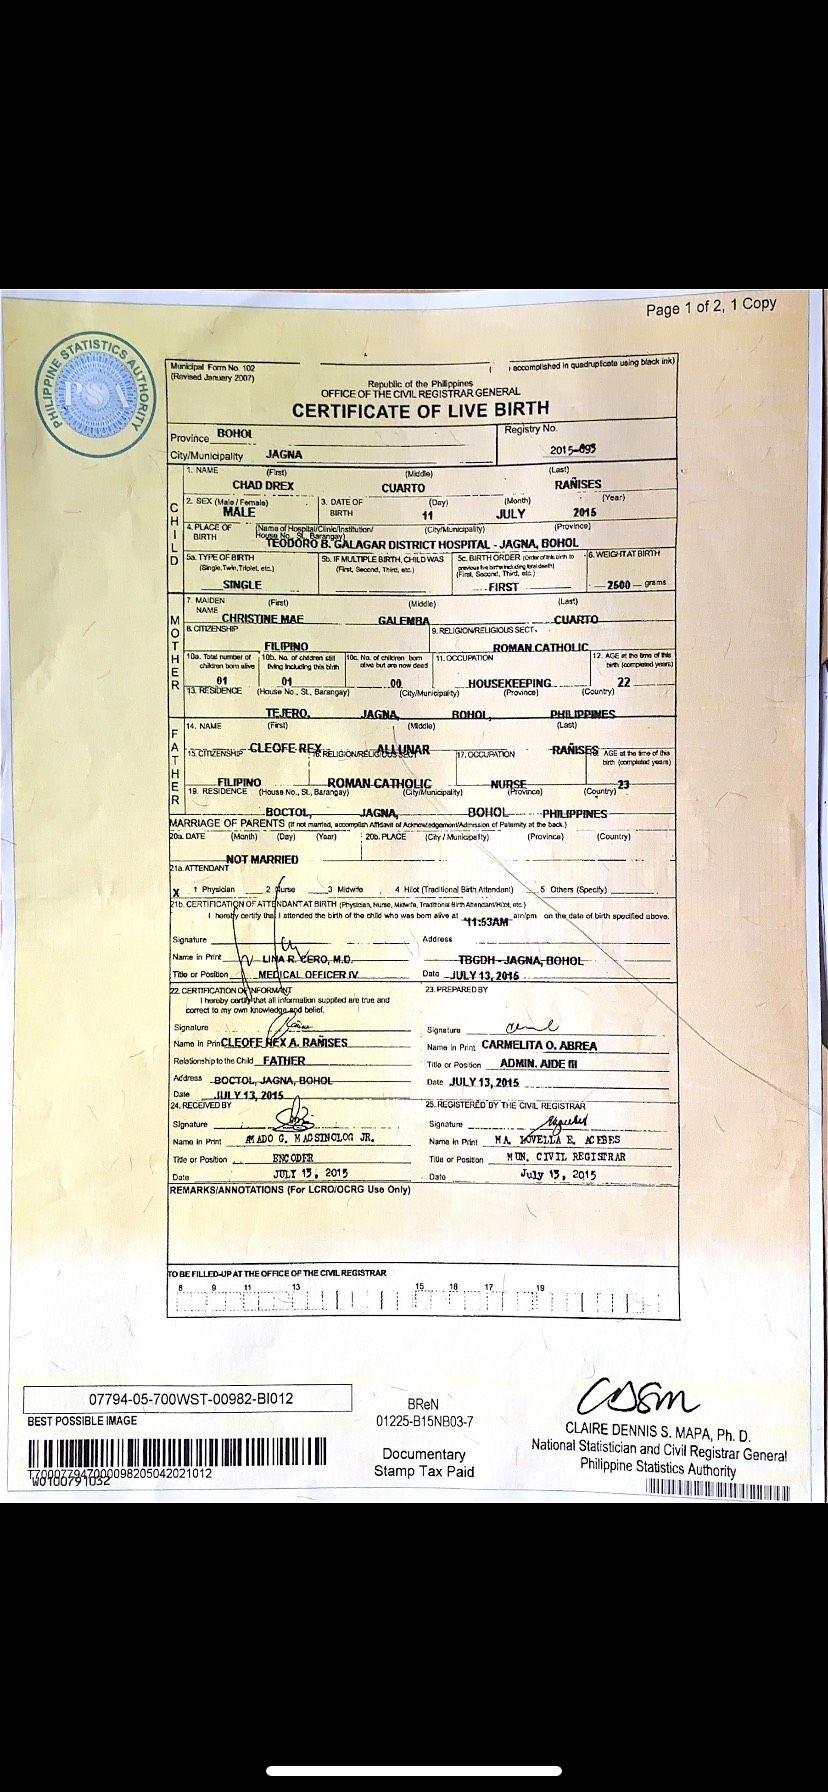 Page 1 of 2, 1 Copy
PHILIPPINE STATISTICS AUTHORITY
PSA
Municipal Form No. 102
(Revised January 2007)
accomplished in quadruplicate using black ink)
Republic of the Philippines
OFFICE OF THE CIVIL REGISTRAR GENERAL
CERTIFICATE OF LIVE BIRTH
Province BOHOL
Registry No.
City/Municipality JAGNA
2015-695
CHILD
1. NAME (First) (Middle) (Last)
CHAD DREX CUARTO RAÑISES
2. SEX (Male / Female) 3. DATE OF BIRTH (Day) (Month) (Year)
MALE 11 JULY 2015
4. PLACE OF BIRTH (Name of Hospital/Clinic/Institution/ House No., St., Barangay) (City/Municipality) (Province)
TEODORO B. GALAGAR DISTRICT HOSPITAL - JAGNA, BOHOL
5a. TYPE OF BIRTH (Single, Twin, Triplet, etc.) 5b. IF MULTIPLE BIRTH, CHILD WAS (First, Second, Third, etc.) 5c. BIRTH ORDER (Order of this birth to previous live births including fetal death) (First, Second, Third, etc.) 6. WEIGHT AT BIRTH
SINGLE FIRST 2600 grams
MOTHER
7. MAIDEN NAME (First) (Middle) (Last)
CHRISTINE MAE GALEMBA CUARTO
8. CITIZENSHIP 9. RELIGION/RELIGIOUS SECT
FILIPINO ROMAN CATHOLIC
10a. Total number of children born alive 10b. No. of children still living including this birth 10c. No. of children born alive but are now dead 11. OCCUPATION 12. AGE at the time of this birth (completed years)
01 01 00 HOUSEKEEPING 22
13. RESIDENCE (House No., St., Barangay) (City/Municipality) (Province) (Country)
TEJERO, JAGNA, BOHOL, PHILIPPINES
FATHER
14. NAME (First) (Middle) (Last)
CLEOFE REX ALLUNAR RAÑISES
15. CITIZENSHIP 16. RELIGION/RELIGIOUS SECT 17. OCCUPATION AGE at the time of this birth (completed years)
FILIPINO ROMAN CATHOLIC NURSE 23
19. RESIDENCE (House No., St., Barangay) (City/Municipality) (Province) (Country)
BOCTOL, JAGNA, BOHOL PHILIPPINES
MARRIAGE OF PARENTS (If not married, accomplish Affidavit of Acknowledgement/Admission of Paternity at the back.)
20a. DATE (Month) (Day) (Year) 20b. PLACE (City / Municipality) (Province) (Country)
NOT MARRIED
21a. ATTENDANT
X 1 Physician 2 Nurse 3 Midwife 4 Hilot (Traditional Birth Attendant) 5 Others (Specify)
21b. CERTIFICATION OF ATTENDANT AT BIRTH (Physician, Nurse, Midwife, Traditional Birth Attendant/Hilot, etc.)
I hereby certify that I attended the birth of the child who was born alive at 11:53AM am/pm on the date of birth specified above.
Signature Address
Name in Print LINA R. CERO, M.D. TBGDH - JAGNA, BOHOL
Title or Position MEDICAL OFFICER IV Date JULY 13, 2015
22. CERTIFICATION OF INFORMANT
I hereby certify that all information supplied are true and
correct to my own knowledge and belief.
Signature
Name in Print CLEOFE REX A. RAÑISES
Relationship to the Child FATHER
Address BOCTOL, JAGNA, BOHOL
Date JULY 13, 2015
23. PREPARED BY
Signature
Name in Print CARMELITA O. ABREA
Title or Position ADMIN. AIDE III
Date JULY 13, 2015
24. RECEIVED BY
Signature
Name in Print AMADO G. MAGSINOLOG JR.
Title or Position ENCODER
Date JULY 13, 2015
25. REGISTERED BY THE CIVIL REGISTRAR
Signature
Name in Print MA. LOVELLA E. ACEBES
Title or Position MUN. CIVIL REGISTRAR
Date July 13, 2015
REMARKS/ANNOTATIONS (For LCRO/OCRG Use Only)
TO BE FILLED-UP AT THE OFFICE OF THE CIVIL REGISTRAR
8 9 11 13 15 16 17 19
07794-05-700WST-00982-BI012
BEST POSSIBLE IMAGE
T700077947000098205042021012
W0100791032
BReN
01225-B15NB03-7
Documentary
Stamp Tax Paid
CLAIRE DENNIS S. MAPA, Ph. D.
National Statistician and Civil Registrar General
Philippine Statistics Authority